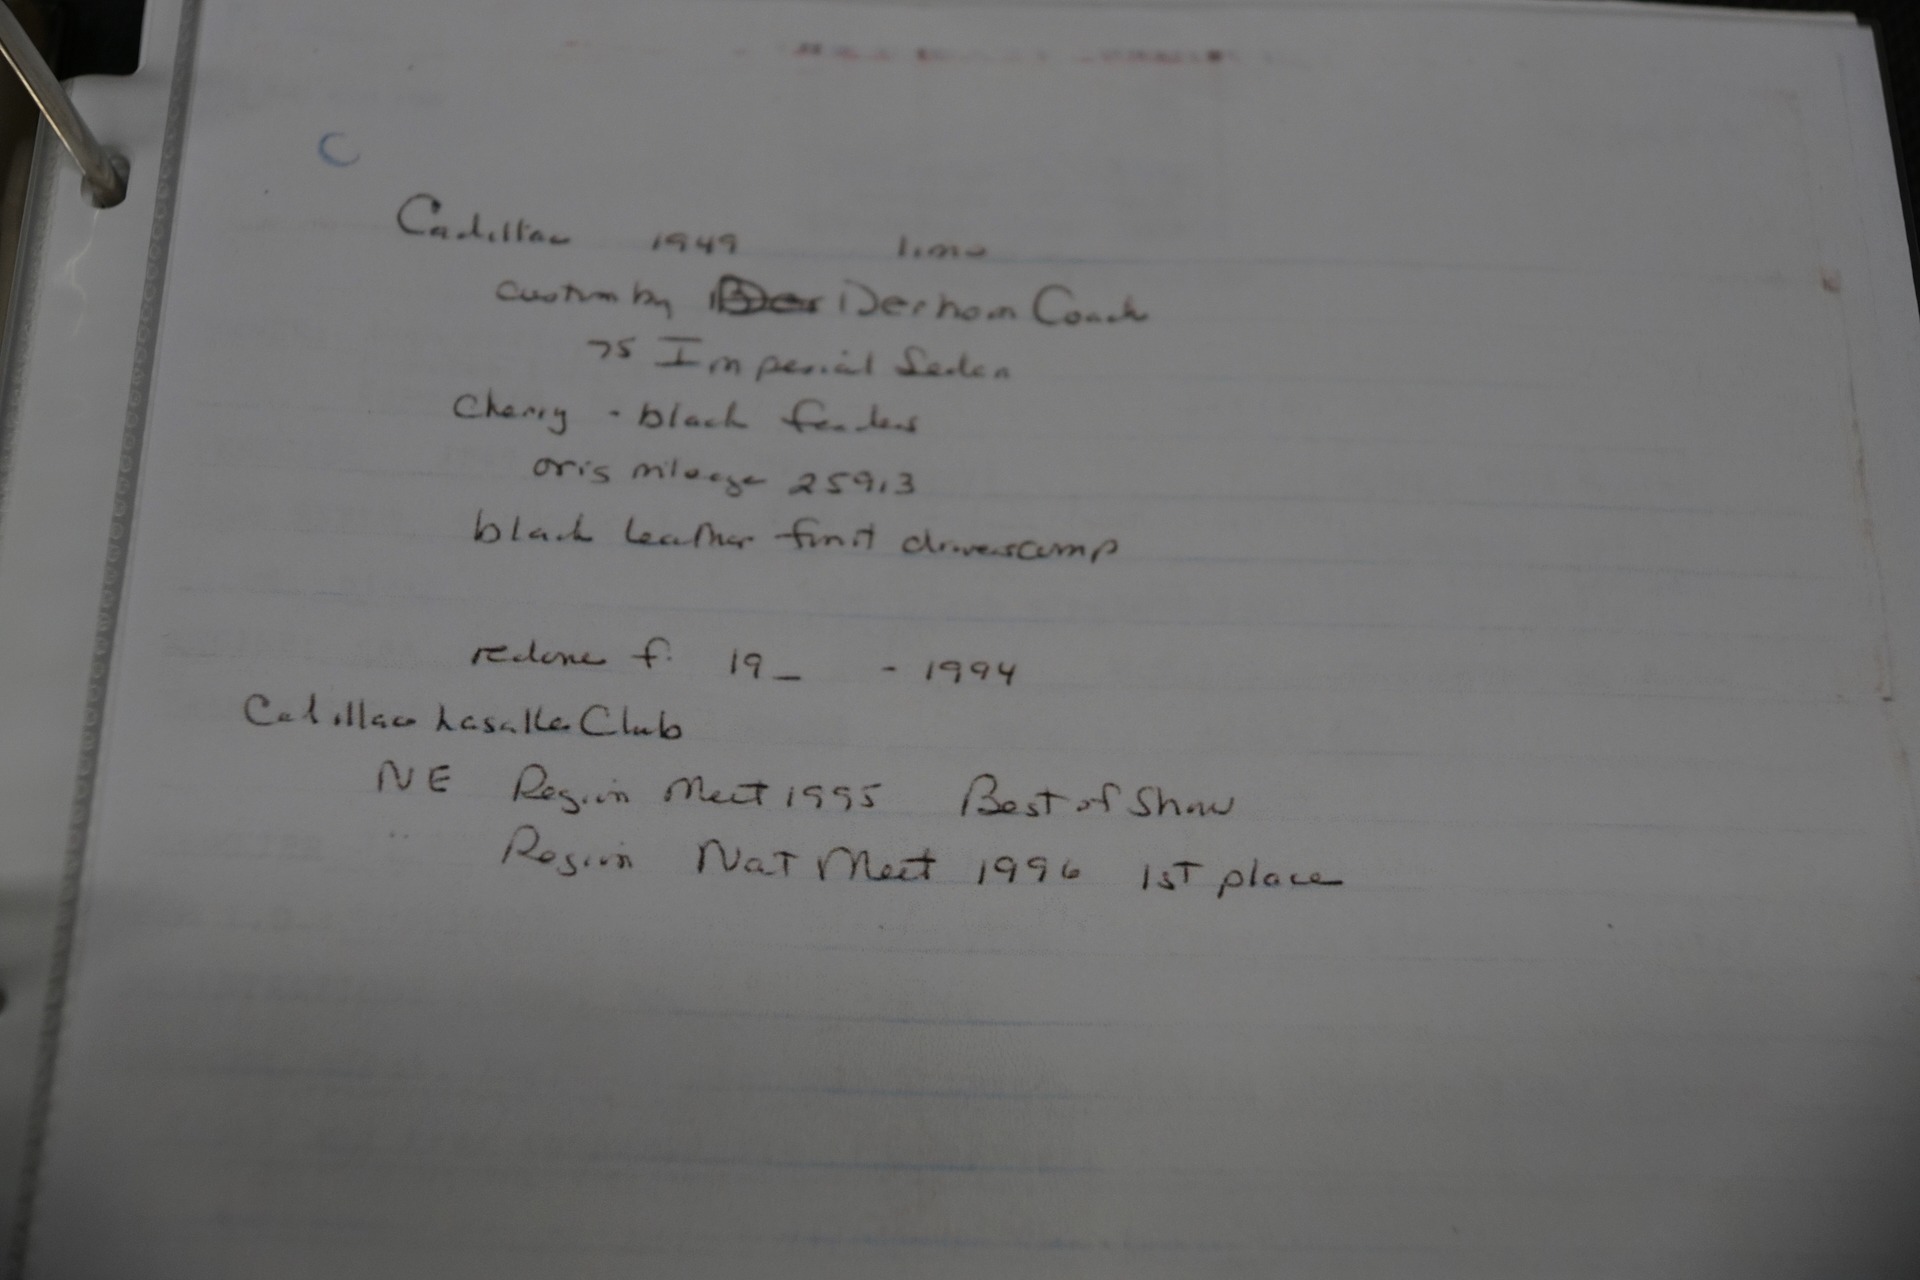 C
Cadillac 1949 limo
custom by Derham Coach
75 Imperial Sedan
Cherry - black fenders
orig mileage 25913
black leather front drivers comp
redone f. 19_ - 1994
Cadillac Lasalle Club
NE Region Meet 1995 Best of Show
Region Nat Meet 1996 1st place